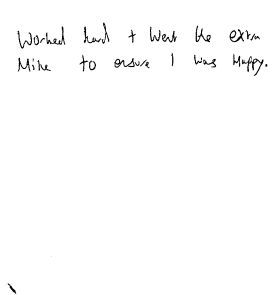 Worked hard + Went the extra
Mile to ensure I was Happy.